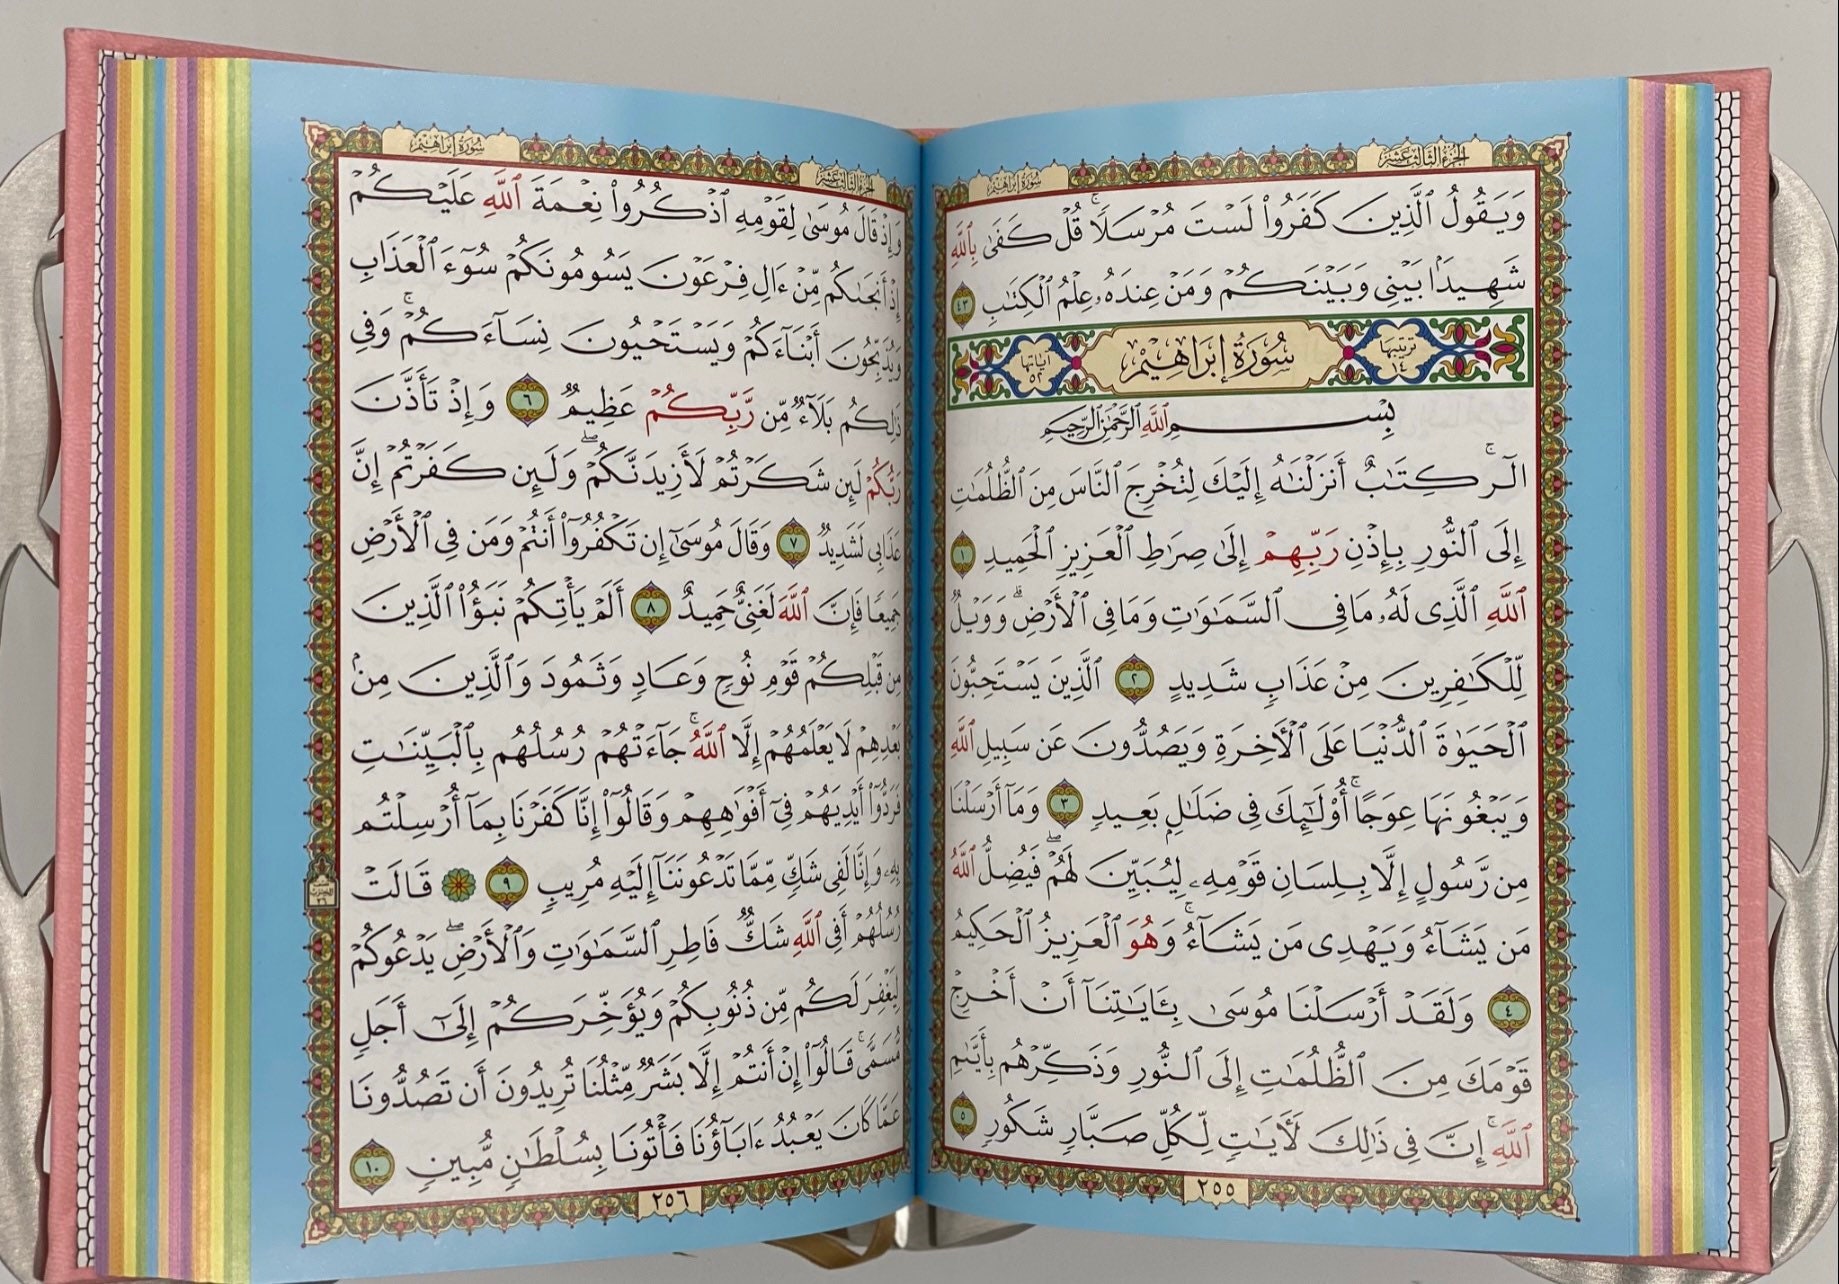 الجزء الثالث عشر
سورة إبراهيم
وَيَقُولُ ٱلَّذِينَ كَفَرُوا۟ لَسْتَ مُرْسَلًا ۚ قُلْ كَفَىٰ بِٱللَّهِ
شَهِيدًۢا بَيْنِى وَبَيْنَكُمْ وَمَنْ عِندَهُۥ عِلْمُ ٱلْكِتَٰبِ ٤٣
ترتيبها ١٤
سُورَةُ إِبْرَاهِيْمَ
آياتها ٥٢
بِسْمِ ٱللَّهِ ٱلرَّحْمَٰنِ ٱلرَّحِيمِ
الٓر ۚ كِتَٰبٌ أَنزَلْنَٰهُ إِلَيْكَ لِتُخْرِجَ ٱلنَّاسَ مِنَ ٱلظُّلُمَٰتِ
إِلَى ٱلنُّورِ بِإِذْنِ رَبِّهِمْ إِلَىٰ صِرَٰطِ ٱلْعَزِيزِ ٱلْحَمِيدِ ١
ٱللَّهِ ٱلَّذِى لَهُۥ مَا فِى ٱلسَّمَٰوَٰتِ وَمَا فِى ٱلْأَرْضِ ۗ وَوَيْلٌ
لِّلْكَٰفِرِينَ مِنْ عَذَابٍ شَدِيدٍ ٢ ٱلَّذِينَ يَسْتَحِبُّونَ
ٱلْحَيَوٰةَ ٱلدُّنْيَا عَلَى ٱلْـَٔاخِرَةِ وَيَصُدُّونَ عَن سَبِيلِ ٱللَّهِ
وَيَبْغُونَهَا عِوَجًا ۚ أُو۟لَٰٓئِكَ فِى ضَلَٰلٍۭ بَعِيدٍ ٣ وَمَآ أَرْسَلْنَا
مِن رَّسُولٍ إِلَّا بِلِسَانِ قَوْمِهِۦ لِيُبَيِّنَ لَهُمْ ۖ فَيُضِلُّ ٱللَّهُ
مَن يَشَآءُ وَيَهْدِى مَن يَشَآءُ ۚ وَهُوَ ٱلْعَزِيزُ ٱلْحَكِيمُ
٤ وَلَقَدْ أَرْسَلْنَا مُوسَىٰ بِـَٔايَٰتِنَآ أَنْ أَخْرِجْ
قَوْمَكَ مِنَ ٱلظُّلُمَٰتِ إِلَى ٱلنُّورِ وَذَكِّرْهُم بِأَيَّىٰمِ
ٱللَّهِ ۚ إِنَّ فِى ذَٰلِكَ لَـَٔايَٰتٍ لِّكُلِّ صَبَّارٍ شَكُورٍ ٥
٢٥٥
الجزء الثالث عشر
سورة إبراهيم
وَإِذْ قَالَ مُوسَىٰ لِقَوْمِهِ ٱذْكُرُوا۟ نِعْمَةَ ٱللَّهِ عَلَيْكُمْ
إِذْ أَنجَىٰكُم مِّنْ ءَالِ فِرْعَوْنَ يَسُومُونَكُمْ سُوٓءَ ٱلْعَذَابِ
وَيُذَبِّحُونَ أَبْنَآءَكُمْ وَيَسْتَحْيُونَ نِسَآءَكُمْ ۚ وَفِى
ذَٰلِكُم بَلَآءٌ مِّن رَّبِّكُمْ عَظِيمٌ ٦ وَإِذْ تَأَذَّنَ
رَبُّكُمْ لَئِن شَكَرْتُمْ لَأَزِيدَنَّكُمْ ۖ وَلَئِن كَفَرْتُمْ إِنَّ
عَذَابِى لَشَدِيدٌ ٧ وَقَالَ مُوسَىٰٓ إِن تَكْفُرُوٓا۟ أَنتُمْ وَمَن فِى ٱلْأَرْضِ
جَمِيعًا فَإِنَّ ٱللَّهَ لَغَنِىٌّ حَمِيدٌ ٨ أَلَمْ يَأْتِكُمْ نَبَؤُا۟ ٱلَّذِينَ
مِن قَبْلِكُمْ قَوْمِ نُوحٍ وَعَادٍ وَثَمُودَ وَٱلَّذِينَ مِنۢ
بَعْدِهِمْ لَا يَعْلَمُهُمْ إِلَّا ٱللَّهُ ۚ جَآءَتْهُمْ رُسُلُهُم بِٱلْبَيِّنَٰتِ
فَرَدُّوٓا۟ أَيْدِيَهُمْ فِىٓ أَفْوَٰهِهِمْ وَقَالُوٓا۟ إِنَّا كَفَرْنَا بِمَآ أُرْسِلْتُم
بِهِۦ وَإِنَّا لَفِى شَكٍّ مِّمَّا تَدْعُونَنَآ إِلَيْهِ مُرِيبٍ ٩ قَالَتْ
رُسُلُهُمْ أَفِى ٱللَّهِ شَكٌّ فَاطِرِ ٱلسَّمَٰوَٰتِ وَٱلْأَرْضِ ۖ يَدْعُوكُمْ
لِيَغْفِرَ لَكُم مِّن ذُنُوبِكُمْ وَيُؤَخِّرَكُمْ إِلَىٰٓ أَجَلٍ
مُّسَمًّى ۚ قَالُوٓا۟ إِنْ أَنتُمْ إِلَّا بَشَرٌ مِّثْلُنَا تُرِيدُونَ أَن تَصُدُّونَا
عَمَّا كَانَ يَعْبُدُ ءَابَآؤُنَا فَأْتُونَا بِسُلْطَٰنٍ مُّبِينٍ ١٠
٢٥٦